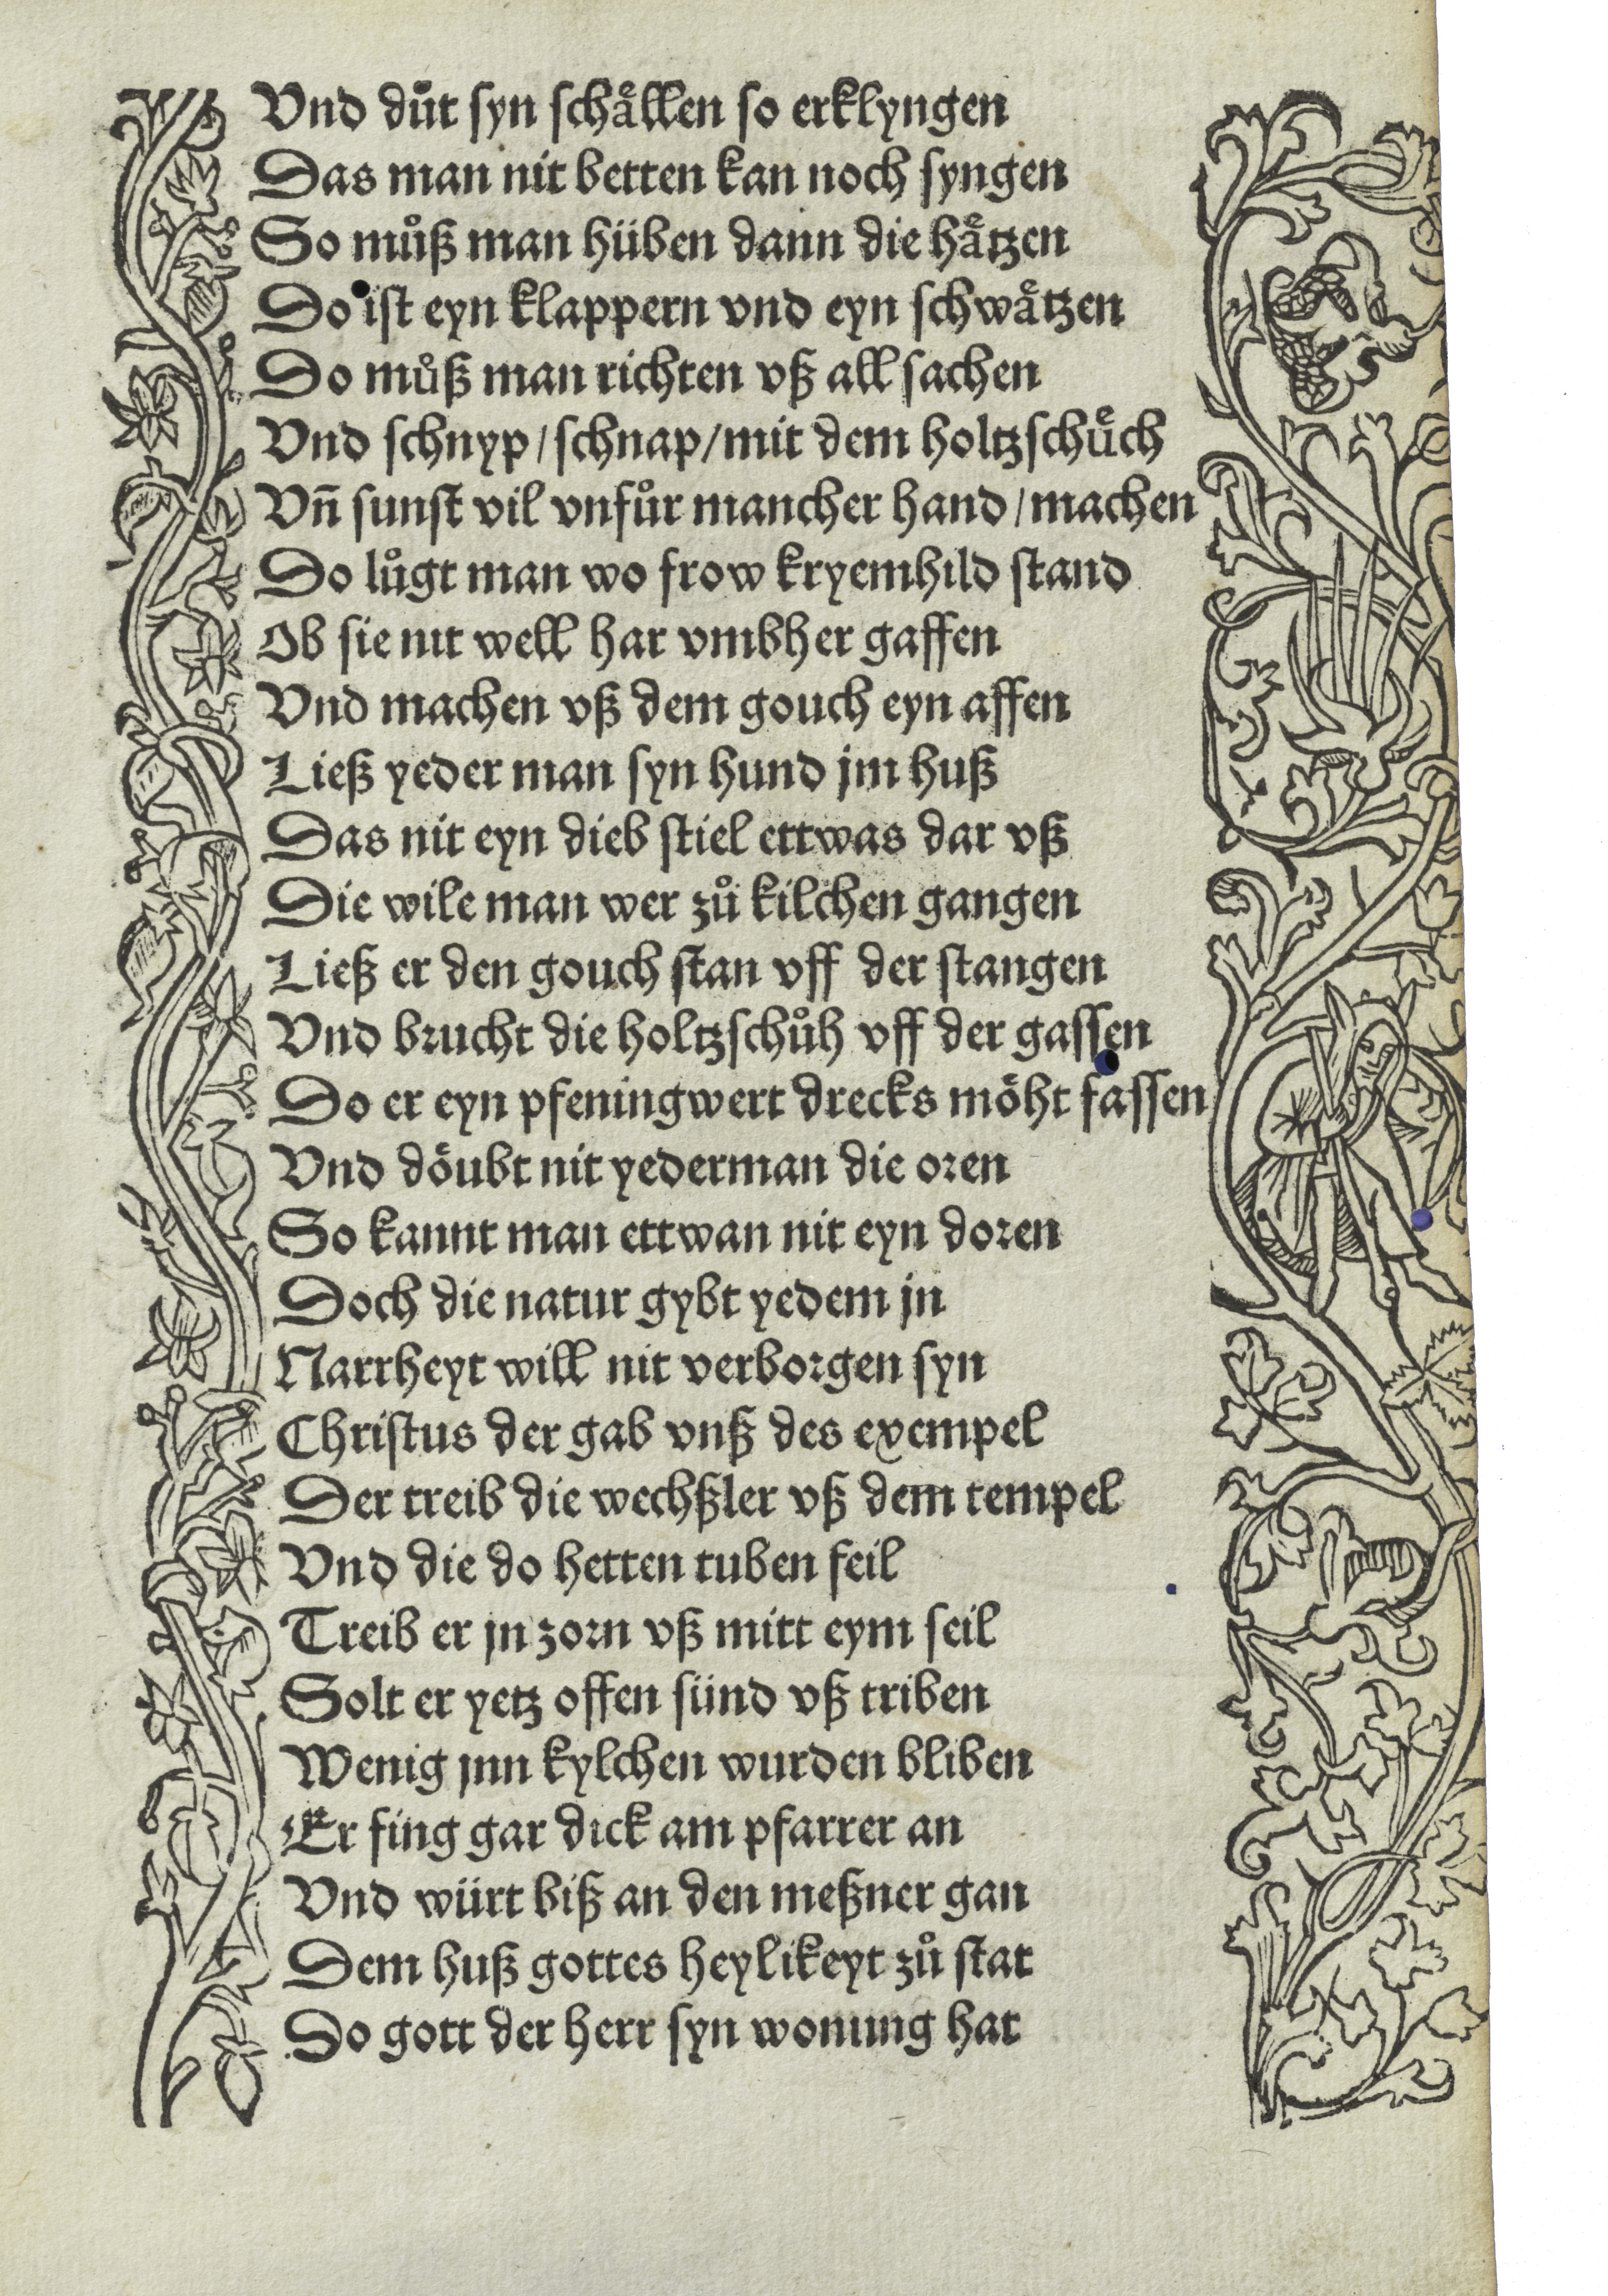 Vnd duͦt syn schaͤllen so erklyngen
Das man nit betten kan noch syngen
So muͦß man hüben dann die haͤtzen
Do ist eyn klappern vnd eyn schwaͤtzen
Do muͦß man richten vß all sachen
Vnd schnyp/schnap/mit dem holtzschuͤch
Vn̄ sunst vil vnfuͦr mancher hand/machen
Do luͦgt man wo frow kryemhild stand
Ob sie nit well har vmbher gaffen
Vnd machen vß dem gouch eyn affen
Ließ yeder man syn hund jm huß
Das nit eyn dieb stiel ettwas dar vß
Die wile man wer zuͦ kilchen gangen
Ließ er den gouch stan vff der stangen
Vnd brucht die holtzschuͦh vff der gassen
Do er eyn pfeningwert drecks moͤht fassen
Vnd doͤubt nit yederman die oren
So kannt man ettwan nit eyn doren
Doch die natur gybt yedem jn
Narrheyt will nit verborgen syn
Christus der gab vnß des exempel
Der treib die wechßler vß dem tempel
Vnd die do hetten tuben feil
Treib er jn zorn vß mitt eym seil
Solt er yetz offen sünd vß triben
Wenig jnn kylchen wurden bliben
Er fing gar dick am pfarrer an
Vnd würt biß an den meßner gan
Dem huß gottes heylikeyt zuͦ stat
Do gott der herr syn wonung hat